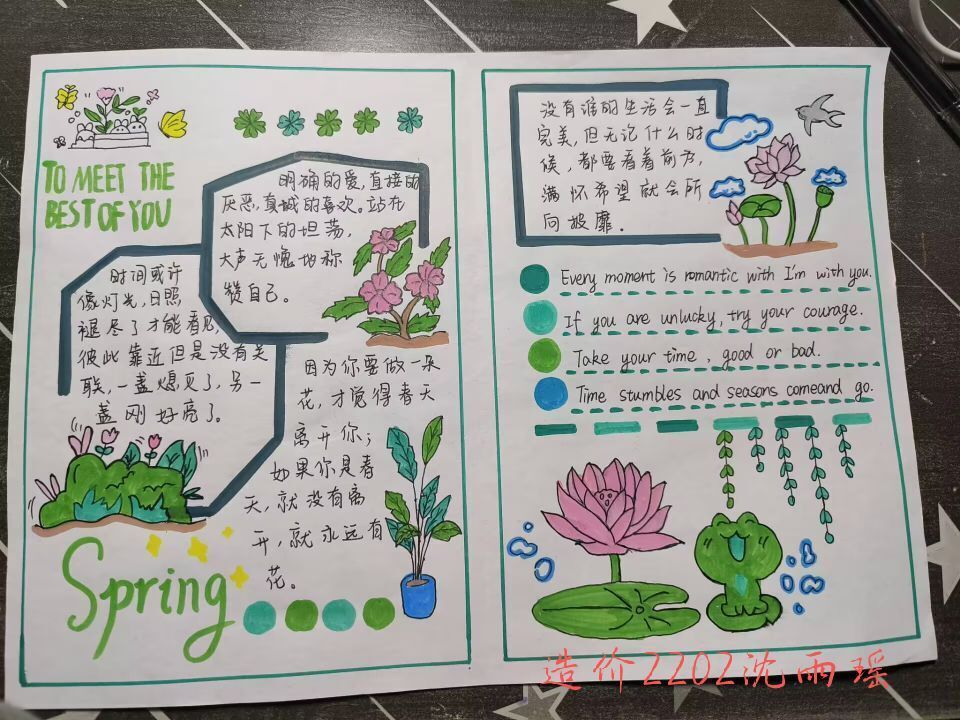 TO MEET THE
BEST OF YOU
明确的爱,直接的
厌恶,真城的喜欢。站在
太阳下的坦荡,
大声无愧地称
赞自己。
时间或许
像灯光,日照
褪尽了才能看见,
彼此靠近但是没有关
联,一盏熄灭了,另一
盏刚好亮了。
因为你要做一朵
花,才觉得春天
离开你;
如果你是春
天,就没有离
开,就永远有
花。
Spring
没有谁的生活会一直
完美,但无论什么时
候,都要看着前方,
满怀希望就会所
向披靡.
Every moment is romantic with I'm with you.
If you are unlucky, try your courage.
Take your time, good or bad.
Time stumbles and seasons comeand go.
造价2202沈雨瑶